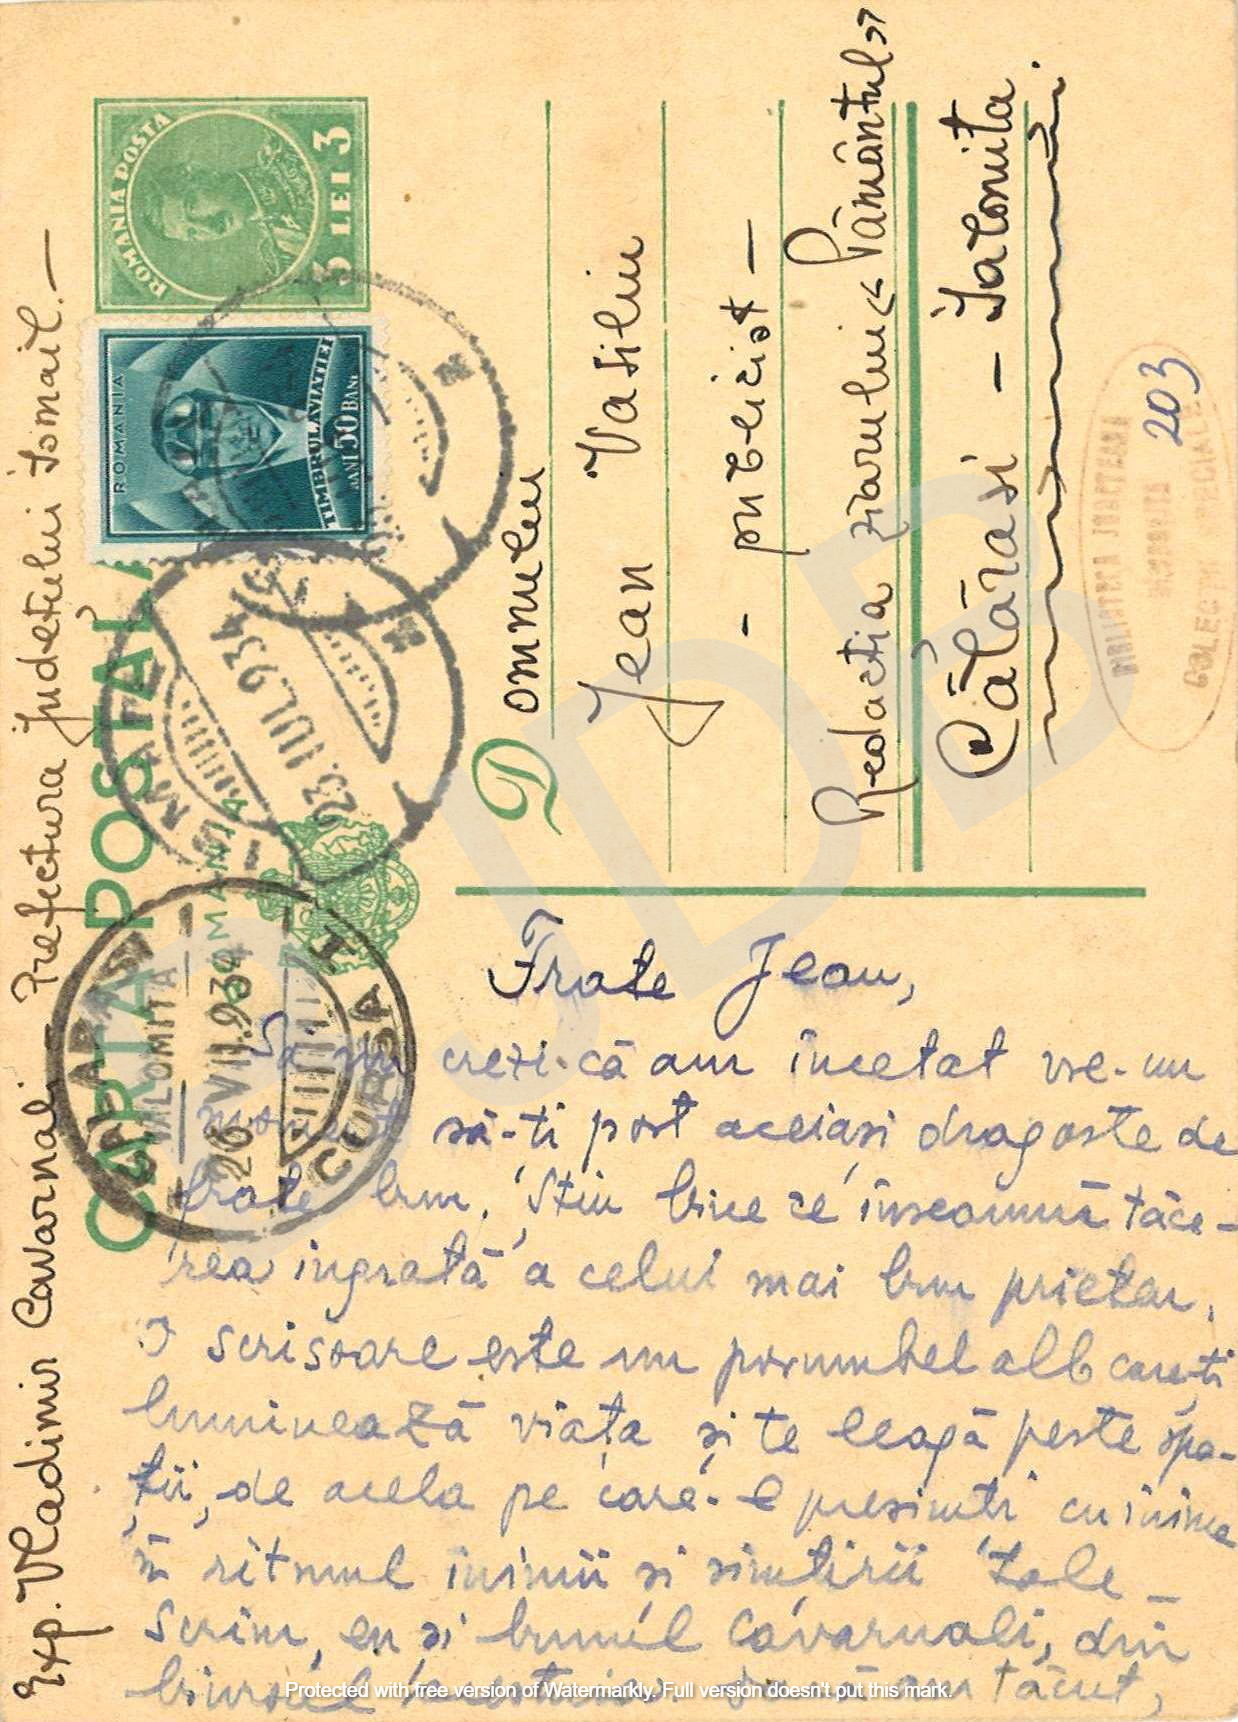 Exp. Vladimir Cavarnali – Prefectura Județului Ismail.—
CARTA POSTALĂ
ROMANIA
ROMANIA POSTA
3 LEI 3
ROMANIA
TIMBRUL AVIATIEI
BANI 50 BANI
23. IUL. 934
CALARASI
IALOMITA
26 VII. 934
CURSA I
Domnului
Jean Vasiliu
- publicist -
Redactia ziarului « Pământul »
Călărasi - Ialomita.
203
BIBLIOTECA
COLECTII SPECIALE
Frate Jean,
Să nu crezi că am încetat vre-un
moment să-ti port aceiași dragoste de
frate bun. Știu bine ce înseamnă tăce-
rea ingrată a celui mai bun prieten.
O scrisoare este un porumbel alb care-ți
luminează viața și te leagă peste spa-
ții, de acela pe care-l presimti cu inima
în ritmul inimii și simțirii tale –
Scrim, eu și bunul Cavarnali, din
biuroul tăcut,
JDB
Protected with free version of Watermarkly. Full version doesn't put this mark.